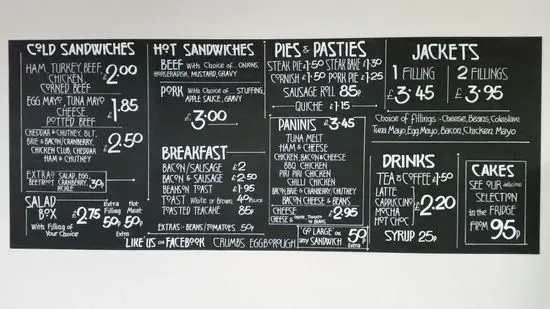 COLD SANDWICHES
HAM, TURKEY, BEEF,
CHICKEN
CORNED BEEF
£2.00
EGG MAYO, TUNA MAYO
CHEESE
POTTED BEEF
£1.85
CHEDDAR & CHUTNEY, BLT,
BRIE & BACON/CRANBERRY,
CHICKEN CLUB, CHEDDAR
HAM & CHUTNEY
£2.50
EXTRAS SALAD, EGG,
BEETROOT, CRANBERRY,
PICKLE
30p
SALAD
BOX
£2.75
Extra
Filling
50p
Hot
Meat
50p
Extra
With Filling of
Your Choice
HOT SANDWICHES
BEEF With Choice of.. ONIONS,
HORSERADISH, MUSTARD, GRAVY
PORK With Choice of.. STUFFING,
APPLE SAUCE, GRAVY
£3.00
BREAKFAST
BACON/SAUSAGE £2
BACON & SAUSAGE £2.50
BEANS ON TOAST £1.95
TOAST White or Brown 40p SLICE
TOASTED TEACAKE 85p
EXTRAS - BEANS/TOMATOES 50p
PIES & PASTIES
STEAK PIE £1.50 STEAK BAKE £1.30
CORNISH £1.50 PORK PIE £1.25
SAUSAGE ROLL 85p
QUICHE £1.15
PANINIS £3.45
TUNA MELT
HAM & CHEESE
CHICKEN, BACON & CHEESE
BBQ CHICKEN
PIRI PIRI CHICKEN
CHILLI CHICKEN
BACON, BRIE & CRANBERRY, CHUTNEY
BACON, CHEESE & BEANS
CHEESE
CHEESE & ONION, TOMATO
or BEANS
£2.95
'GO LARGE' on
any SANDWICH
50p
Extra
JACKETS
1 FILLING
£3.45
2 FILLINGS
£3.95
Choice of Fillings - Cheese, Beans, Coleslaw,
Tuna Mayo, Egg Mayo, Bacon, Chicken Mayo
DRINKS
TEA & COFFEE £1.50
LATTE
CAPPUCCINO
MOCHA
HOT CHOC
£2.20
SYRUP 25p
CAKES
SEE OUR delicious
SELECTION
in the FRIDGE
FROM 95p
LIKE US ON FACEBOOK CRUMBS EGGBOROUGH